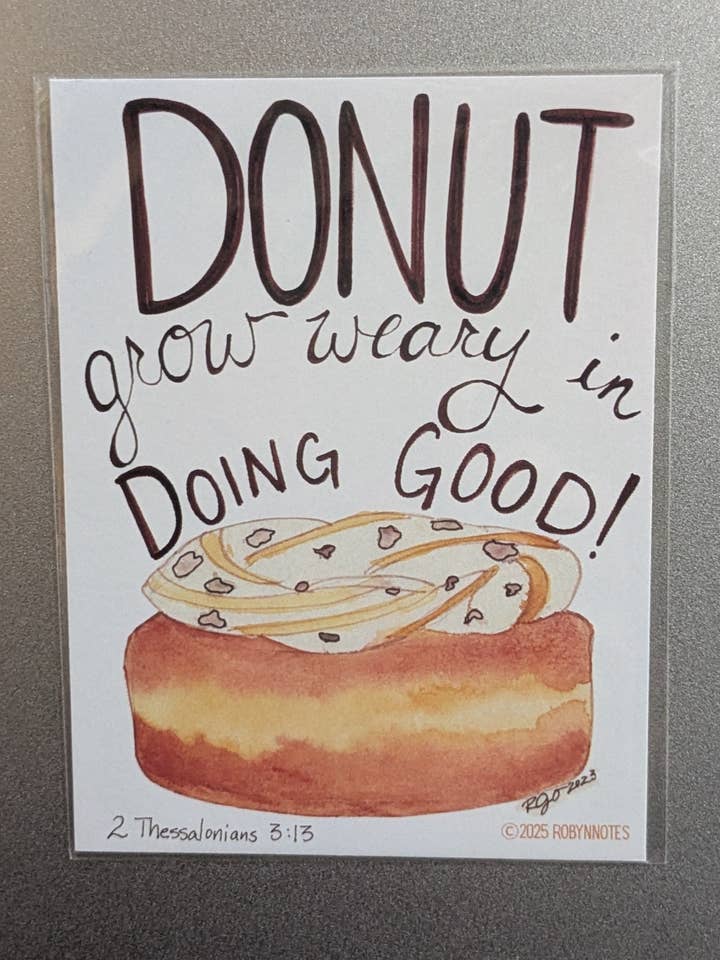 DONUT
grow weary in
DOING GOOD!
RJO 2023
2 Thessalonians 3:13
©2025 ROBYNNOTES